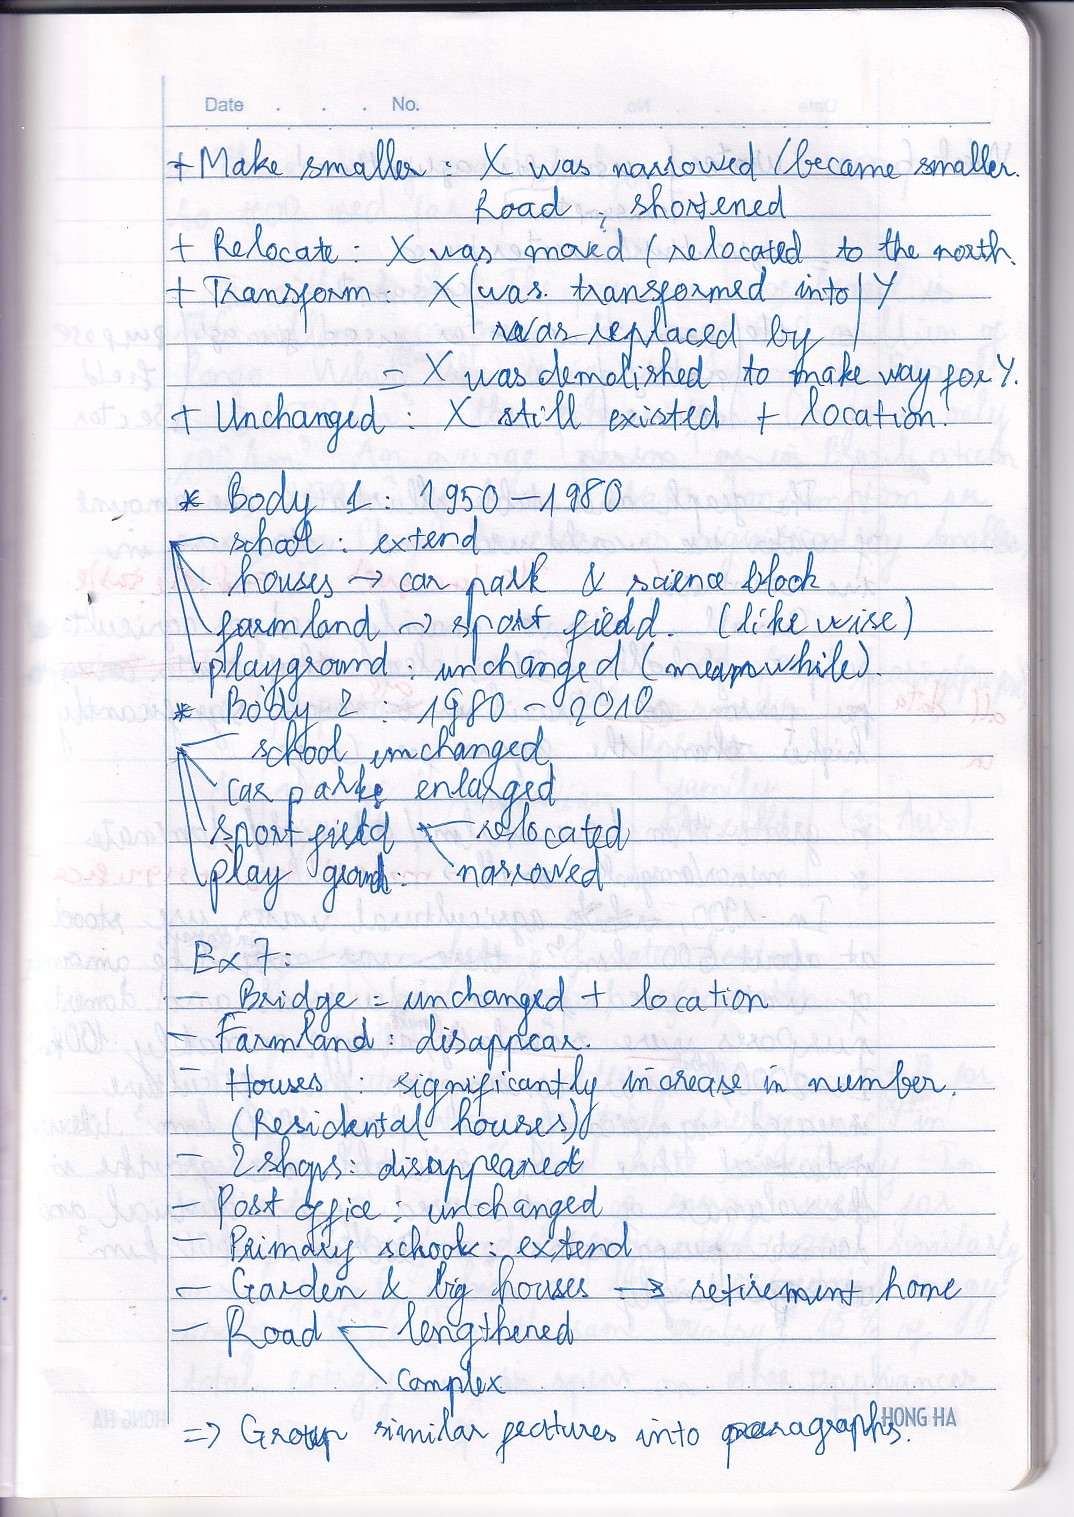 Date . . . No.
+ Make smaller : X was narrowed / became smaller.
Road ; shortened
+ Relocate : X was moved / relocated to the north.
+ Transform : X was transformed into Y
was replaced by
= X was demolished to make way for Y.
+ Unchanged : X still existed + location.
* Body 1 : 1950 – 1980
school : extend
houses → car park & science block
farmland → sport field. (likewise)
playground : unchanged (meanwhile).
* Body 2 : 1980 – 2010
school unchanged
car parks enlarged
sport field relocated
play ground : narrowed
Ex 7 :
– Bridge = unchanged + location
– Farmland : disappear.
– Houses : significantly increase in number.
(Residental houses)
– 2 shops : disappeared
– Post office : unchanged
– Primary school : extend
– Garden & big houses → retirement home
– Road lengthened
complex
HONG HA
=> Group similar features into paragraphs.